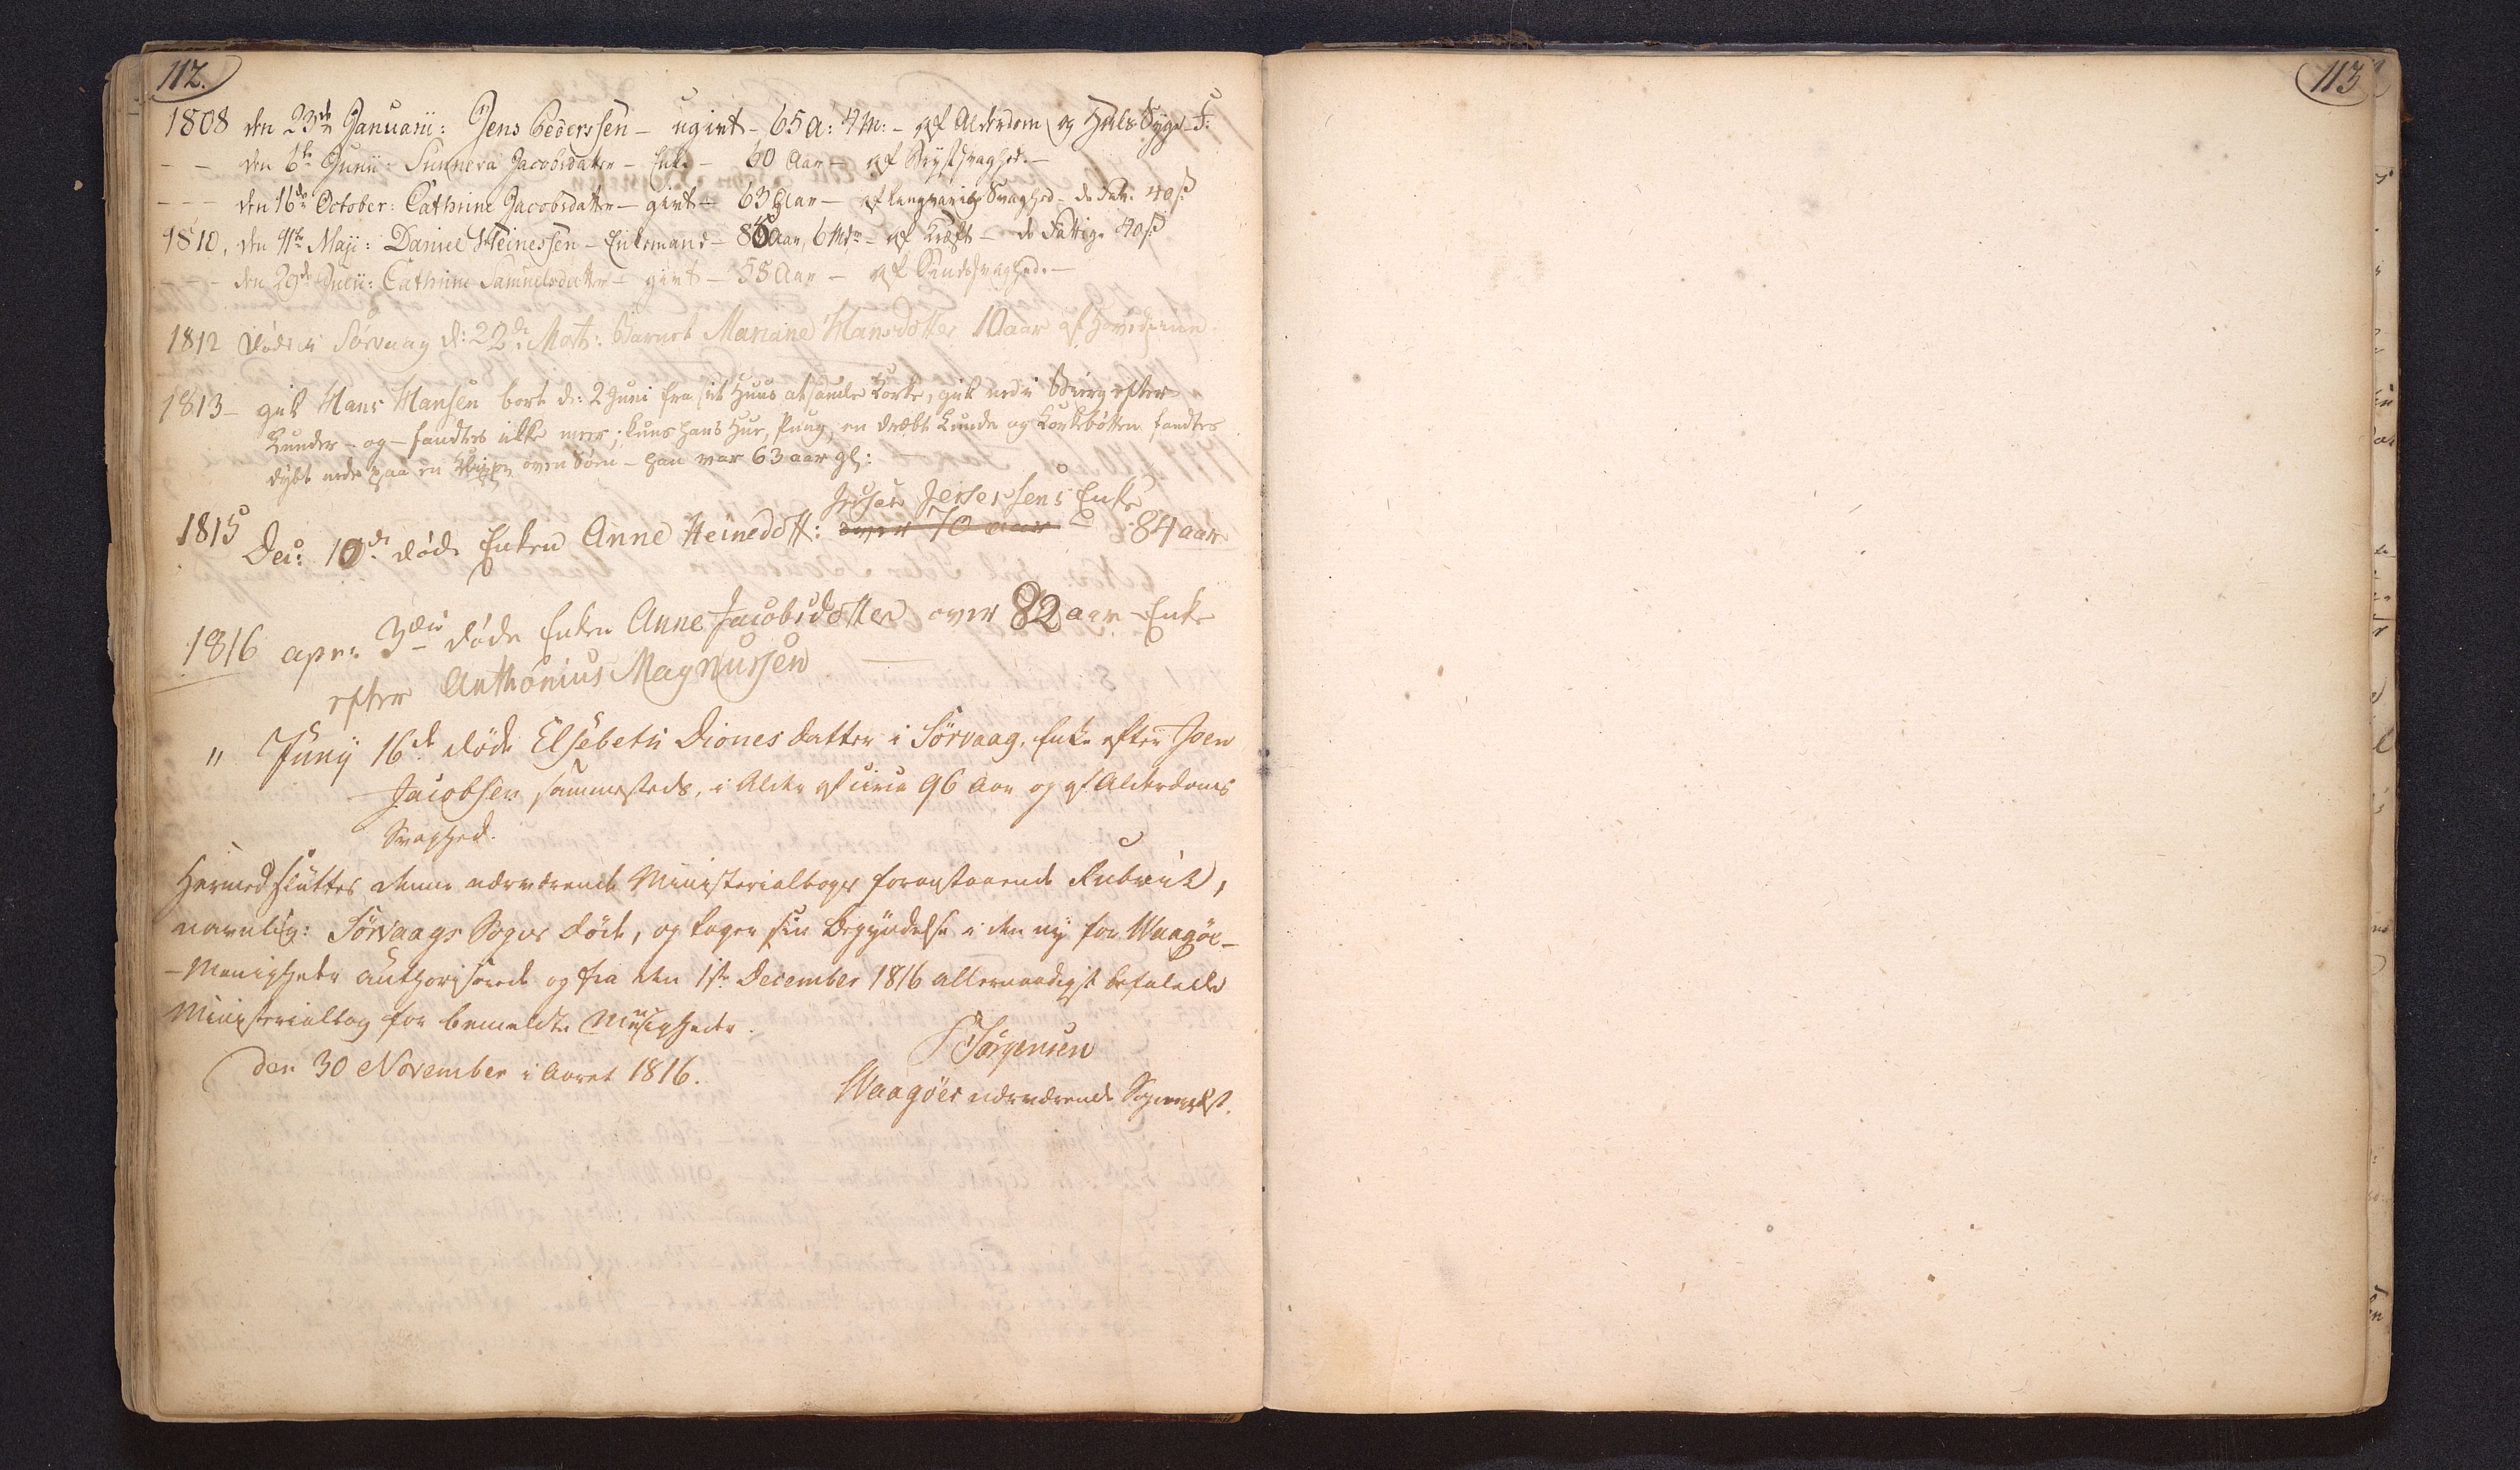 112.
113
1808 den 23de Januarii: Jens Pedersen – ugivt – 65 a: 4 m: – af Alderdom og Hals Syge
– – den 6te Junii: Sunneva Jacobsdatter – Enke – 60 Aar – af Brystsvaghed. –
– – – den 16de October: Cathrine Jacobsdatter – givt – 63 Aar – af langvarig Svaghed – de Fatt: 40 ß
1810, den 4te Maji: Daniel Heinessen – Enkemand – 85 Aar, 6 Mdr – af Kræft – de Fattige 40 ß
– – – den 29de Julii: Cathrine Samuelsdatter – givt – 58 Aar – af Sindssvaghed. –
1812 døde i Sørvaag d: 22de Marts: Barnet Mariane Hansdotter 10 aar af
1813 – gik Hans Hansen bort d: 2 Juni fra sit Huus at samle Korke, gik ned i Bierg efter
Lunder – og – fandtes ikke meer; kuns hans Hue, Pung, en dræbt Lunde og Korkebøtten fandtes
dybt nede paa en Klippe oven Søen – han var 63 aar gl: –
Jensens Enke
1815 Dec: 10de døde Enken Anne Heinedott: over 70 aar – 84 aar
1816 apr: 3die døde Enken Anne Jacobsdotter over 82 aar – Enke
efter Anthonius Magnussen –
" Junij 16de døde Elsebeth Dionesdatter i Sørvaag, Enke efter Joen
Jacobsen sammesteds, i Alder af circa 96 Aar og af Alderdoms
Svaghed.
Hermed sluttes denne nærværende Ministerialbogs foranstaaende Rubrik,
navnlig: Sørvaags Sogns døde, og tager sin Begyndelse i den ny for Waagøe–
– Menigheder authoriserede og fra den 1ste December 1816 allernaadigst befalede
Ministerialbog for bemeldte Menigheder.
den 30 November i Aaret 1816.
Sørensen
Waagøes nærværende Sognepræst.